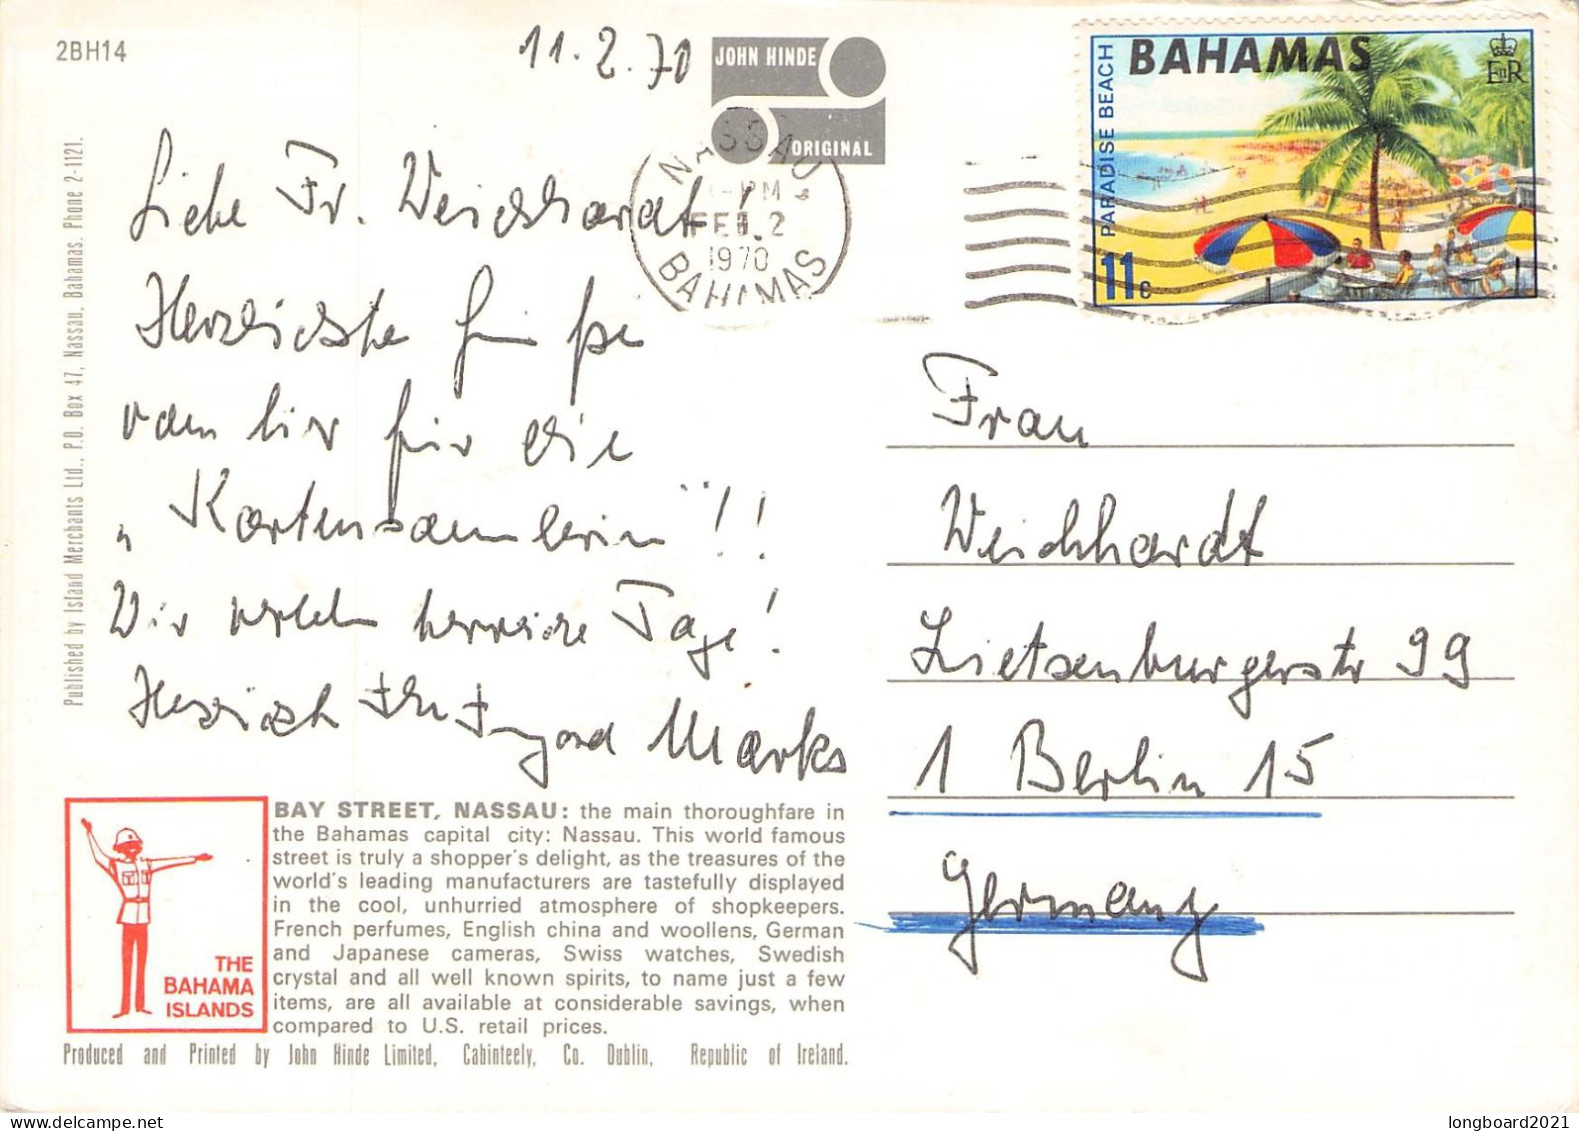 2BH14
11.2.70
JOHN HINDE
ORIGINAL
NASSAU
PM
FEB. 2
1970
BAHAMAS
BAHAMAS
E II R
PARADISE BEACH
11c
Published by Island Merchants Ltd., P.O. Box 47, Nassau, Bahamas. Phone 2-1121.
Liebe Fr. Weichhardt,
Herzlichste Grüße
von hier für die
„Kartensammlerin"!!
Wir verleben herrliche Tage!
Herzlich Ihr Ingord Marks
Frau
Weichhardt
Lietzenburgerstr 99
1 Berlin 15
Germany
BAY STREET, NASSAU: the main thoroughfare in
the Bahamas capital city: Nassau. This world famous
street is truly a shopper's delight, as the treasures of the
world's leading manufacturers are tastefully displayed
in the cool, unhurried atmosphere of shopkeepers.
French perfumes, English china and woollens, German
and Japanese cameras, Swiss watches, Swedish
crystal and all well known spirits, to name just a few
items, are all available at considerable savings, when
compared to U.S. retail prices.
THE
BAHAMA
ISLANDS
Produced and Printed by John Hinde Limited, Cabinteely, Co. Dublin, Republic of Ireland.
longboard2021